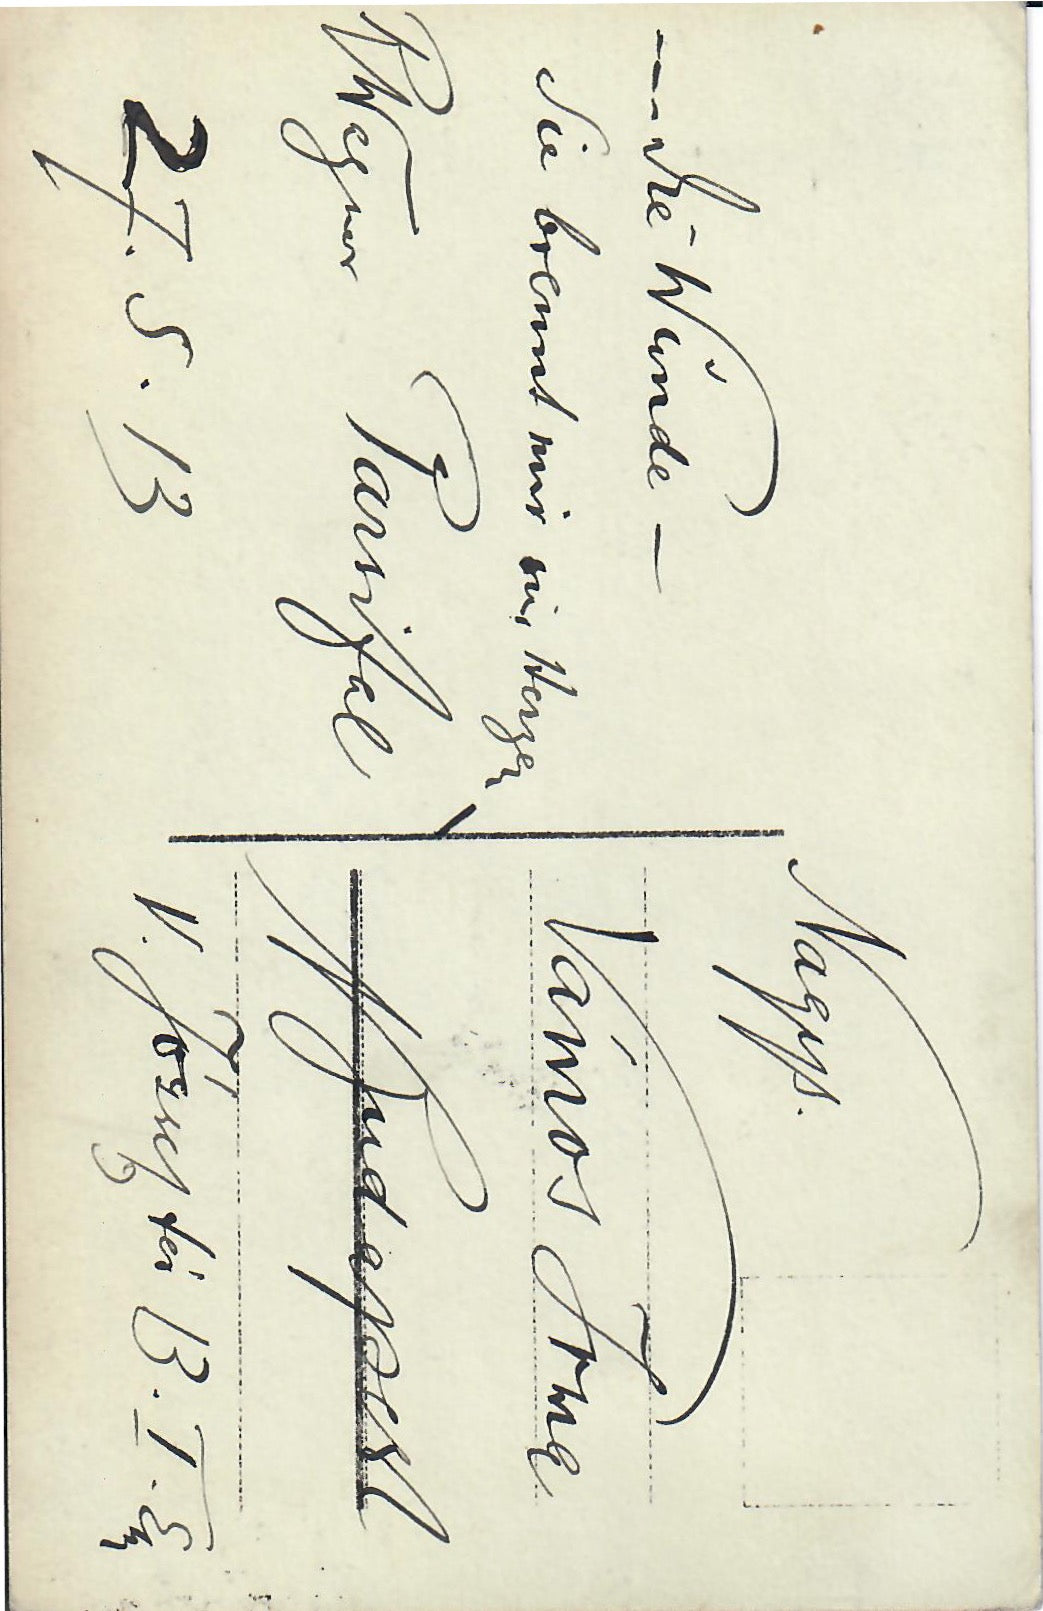 --- Die Wunde —
Sie brennt mir im Herzen
R Wagner Parsifal
27. 5. 13
Nagys.
Vámos Irma
Budapest
V. József tér 13. I. em